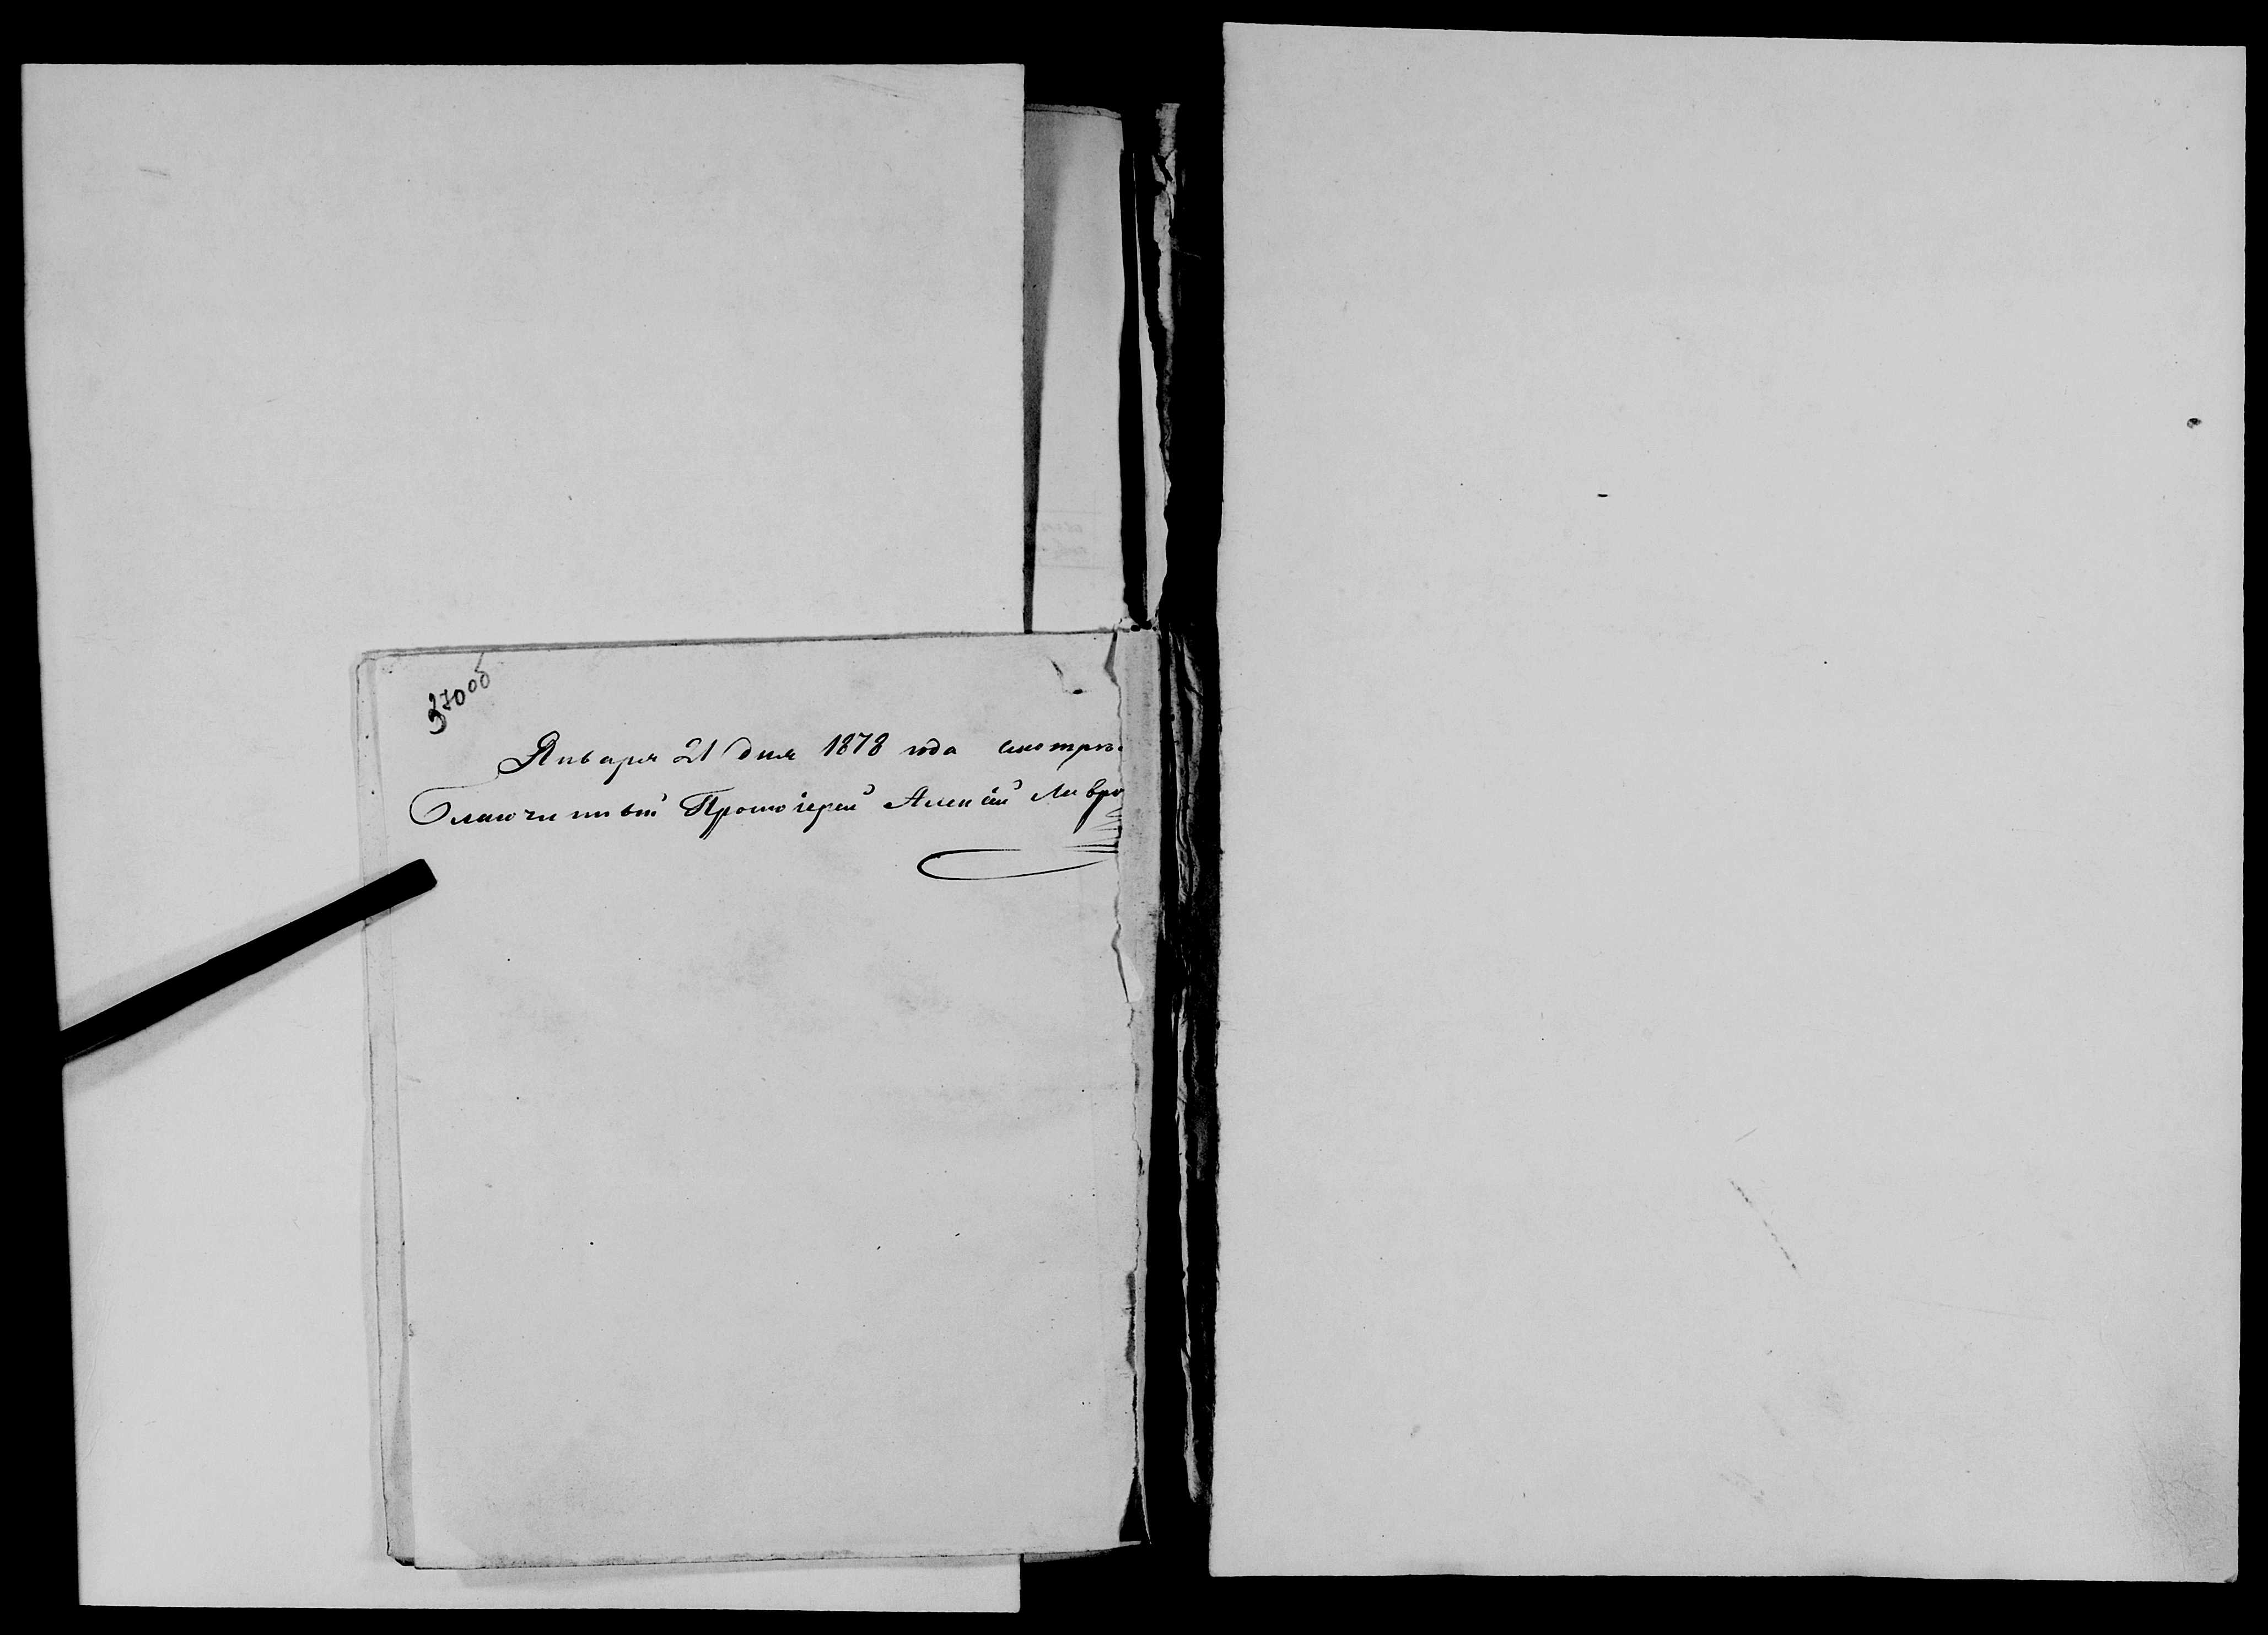 370об
Января 21 дня 1878 года смотрѣ
Благочинный Протоіерей Алексій Лавро